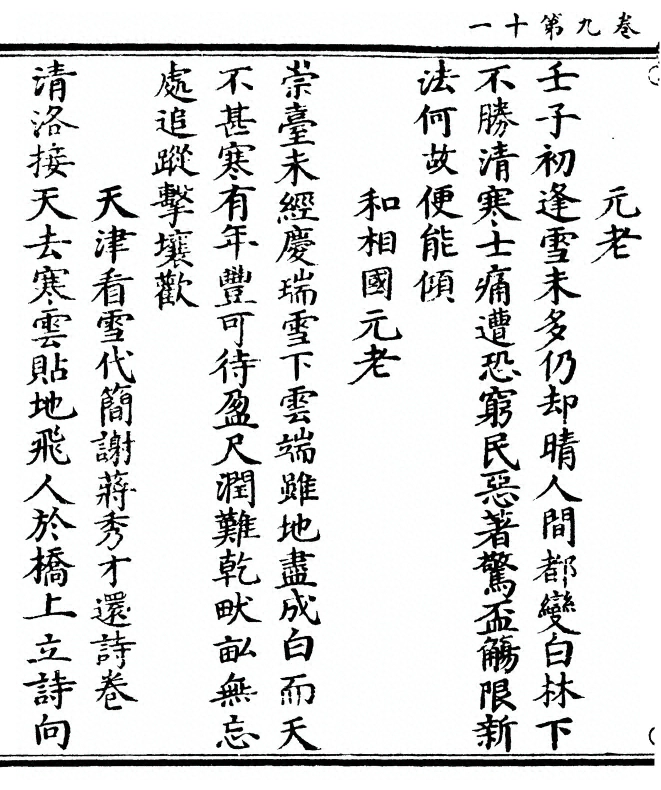 一十第九卷
元老
壬子初逢雪未多仍却晴人間都變白林下
不勝清寒士痛遭恐窮民惡著驚盃觴限新
法何故便能傾
和相國元老
崇臺未經慶瑞雪下雲端雖地盡成白而天
不甚寒有年豐可待盈尺潤難乾畎畝無忘
處追蹤擊壤歡
天津看雪代簡謝蔣秀才還詩卷
清洛接天去寒雲貼地飛人於橋上立詩向